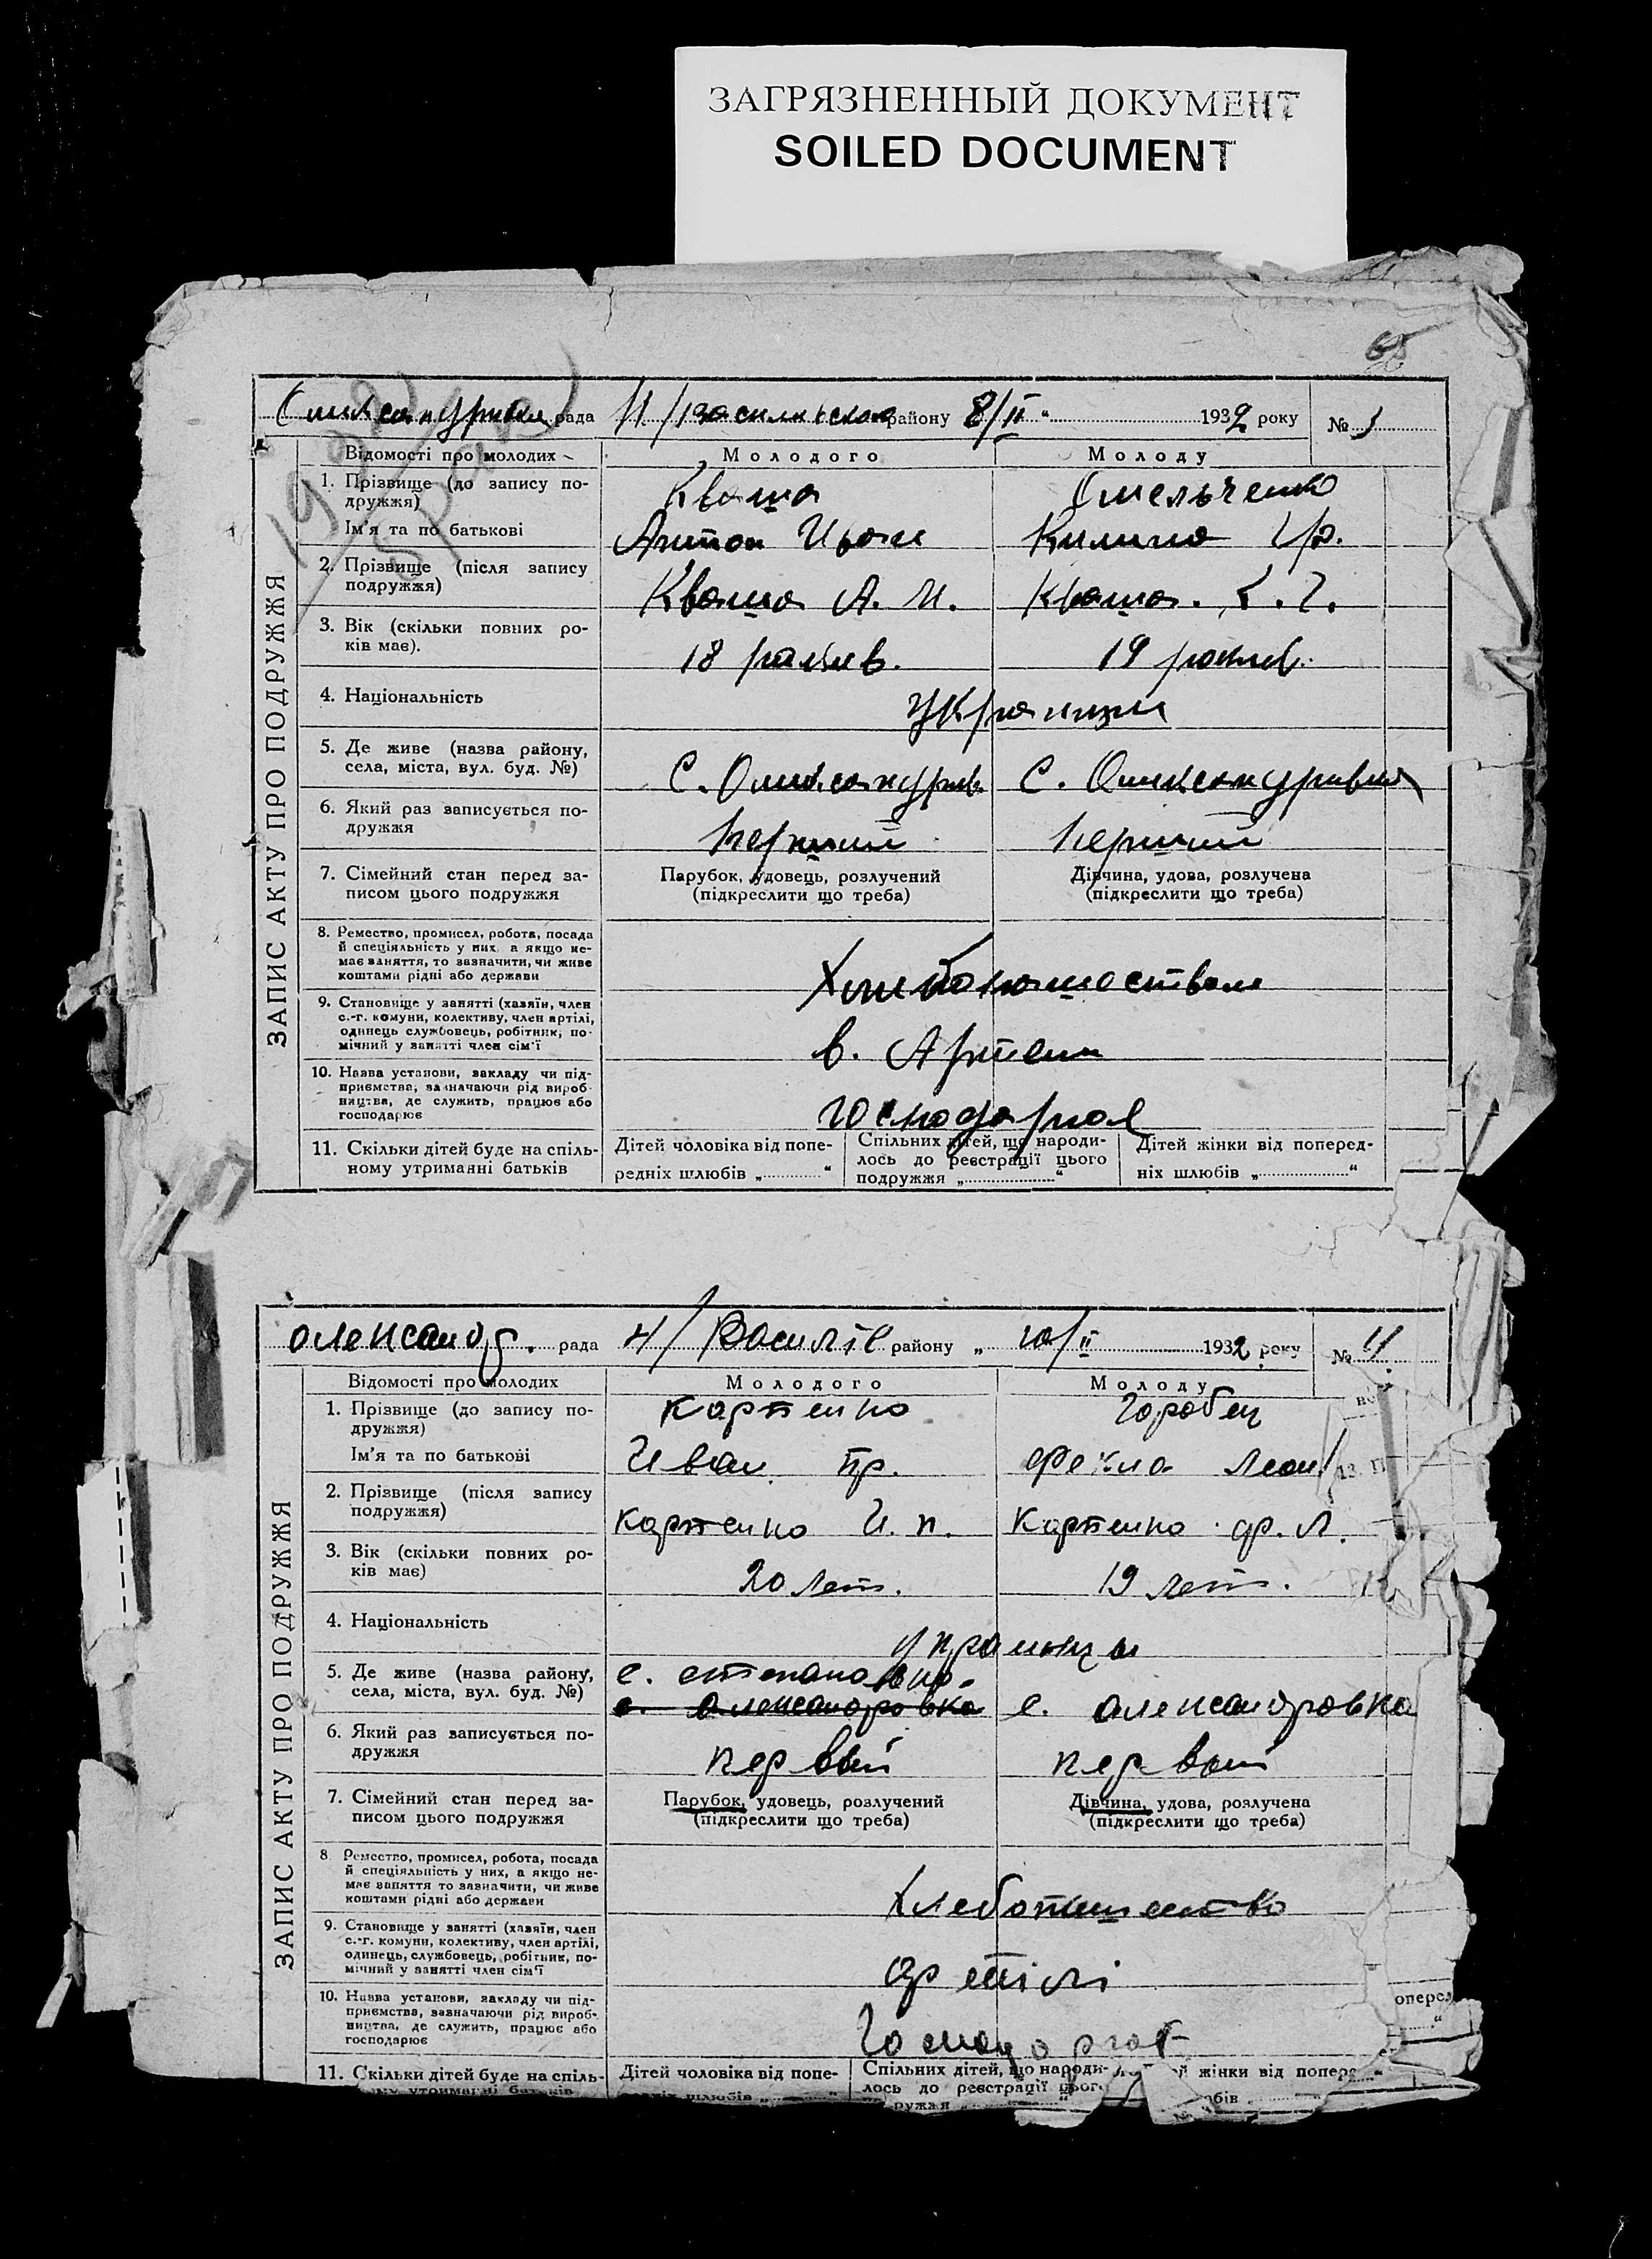 ЗАГРЯЗНЕННЫЙ ДОКУМЕНТ
SOILED DOCUMENT
рада району 8/II 1932 року № 3
ЗАПИС АКТУ ПРО ПОДРУЖЖЯ
Відомості про молодих Молодого Молоду
1. Прізвище (до запису по-
дружжя) Кваша Омельченко
Ім'я та по батькові Антон Килина Гр.
2. Прізвище (після запису
подружжя) Кваша А. И. Кваша. К. Г.
3. Вік (скільки повних ро-
ків має). 18 рокив. 19 рокив.
4. Національність
5. Де живе (назва району,
села, міста, вул. буд. №) С. С.
6. Який раз записується по-
дружжя перший перший
7. Сімейний стан перед за-
писом цього подружжя
Парубок, удовець, розлучений
(підкреслити що треба)
Дівчина, удова, розлучена
(підкреслити що треба)
8. Ремество, промисел, робота, посада
й спеціяльність у них, а якщо не-
має заняття, то зазначити, чи живе
коштами рідні або держави
9. Становище у занятті (хазяїн, член
с.-г. комуни, колективу, член артілі,
одинець службовець, робітник, по-
мічний у занятті член сім'ї
в. Артели
10. Назва установи, закладу чи під-
приємства, зазначаючи рід вироб-
ництва, де служить, працює або
господарює
11. Скільки дітей буде на спіль-
ному утриманні батьків
Дітей чоловіка від попе-
редніх шлюбів „ “
Спільних дітей, що народи-
лось до реєстрації цього
подружжя „ “
Дітей жінки від поперед-
ніх шлюбів „ “
Александ. рада Н/Василів району „ 10/II 1932 року № 4
ЗАПИС АКТУ ПРО ПОДРУЖЖЯ
Відомості про молодих Молодого Молоду
1. Прізвище (до запису по-
дружжя) Карпенко Горобец
Ім'я та по батькові Иван Пр. Фекла Леон
2. Прізвище (після запису
подружжя) Карпенко И. П. Карпенко Ф. Л.
3. Вік (скільки повних ро-
ків має) 20 лет. 19 лет.
4. Національність украинцы
5. Де живе (назва району,
села, міста, вул. буд. №)
с. Степановка.
с. Александровка с. Александровка
6. Який раз записується по-
дружжя первый первый
7. Сімейний стан перед за-
писом цього подружжя
Парубок, удовець, розлучений
(підкреслити що треба)
Дівчина, удова, розлучена
(підкреслити що треба)
8. Ремество, промисел, робота, посада
й спеціяльність у них, а якщо не-
має заняття то зазначити, чи живе
коштами рідні або держави
9. Становище у занятті (хазяїн, член
с.-г. комуни, колективу, член артілі,
одинець, службовець, робітник, по-
мічний у занятті член сім'ї
артілі
10. Назва установи, закладу чи під-
приємства, зазначаючи рід вироб-
ництва, де служить, працює або
господарює
11. Скільки дітей буде на спіль-
Дітей чоловіка від попе-
шлюбів
Спільних дітей, що народи-
лось до реєстрації
жінки від попере